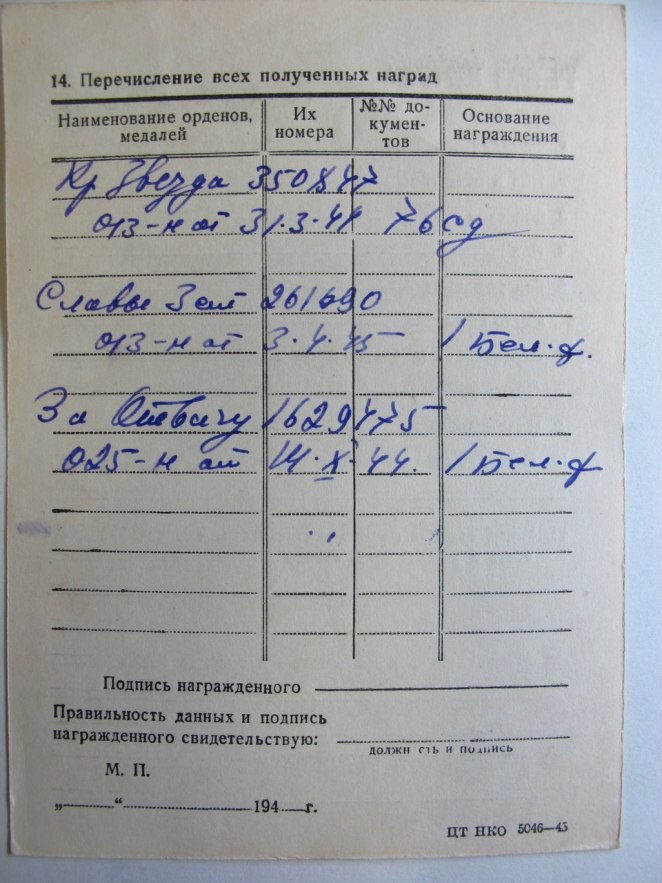 14. Перечисление всех полученных наград
Наименование орденов, медалей
Их номера
№№ документов
Основание награждения
Кр Звезда 350847
013-н от 31.3.44 76 сд
Славы 3 ст 261690
013-н от 3.4.45 1 Бел.ф.
За Отвагу 1629475
025-н от 14.X.44. 1 Бел.ф
Подпись награжденного
Правильность данных и подпись
награжденного свидетельствую:
должн сть и подпись
М. П.
„ “ 194 г.
ЦТ НКО 5046—43